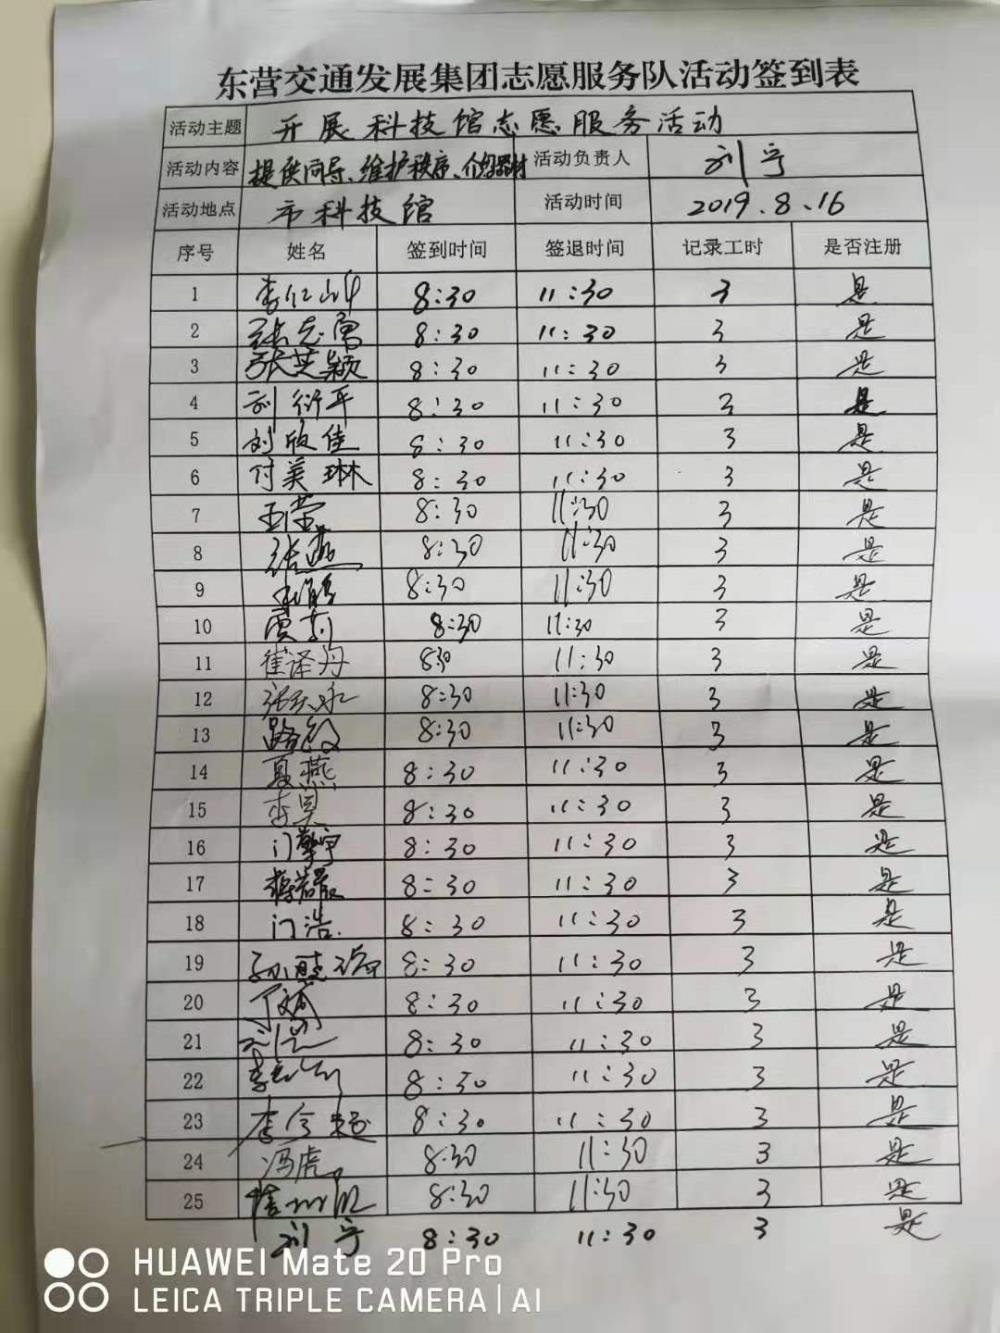 东营交通发展集团志愿服务队活动签到表
活动主题 开展科技馆志愿服务活动
活动内容 提供向导、维护秩序、介绍器材 活动负责人 刘宁
活动地点 市科技馆 活动时间 2019.8.16
序号 姓名 签到时间 签退时间 记录工时 是否注册
1 8:30 11:30 3 是
2 张志勇 8:30 11:30 3 是
3 张芝颖 8:30 11:30 3 是
4 刘衍平 8:30 11:30 3 是
5 刘欣佳 8:30 11:30 3 是
6 付美琳 8:30 11:30 3 是
7 王莹 8:30 11:30 3 是
8 张燕 8:30 11:30 3 是
9 8:30 11:30 3 是
10 贾莉 8:30 11:30 3 是
11 崔译丹 830 11:30 3 是
12 8:30 11:30 3 是
13 8:30 11:30 3 是
14 夏燕 8:30 11:30 3 是
15 李昊 8:30 11:30 3 是
16 门擎宇 8:30 11:30 3 是
17 8:30 11:30 3 是
18 门浩 8:30 11:30 3 是
19 8:30 11:30 3 是
20 8:30 11:30 3 是
21 8:30 11:30 3 是
22 8:30 11:30 3 是
23 8:30 11:30 3 是
24 冯虎 8:30 11:30 3 是
25 8:30 11:30 3 是
刘宁 8:30 11:30 3 是
HUAWEI Mate 20 Pro
LEICA TRIPLE CAMERA | AI